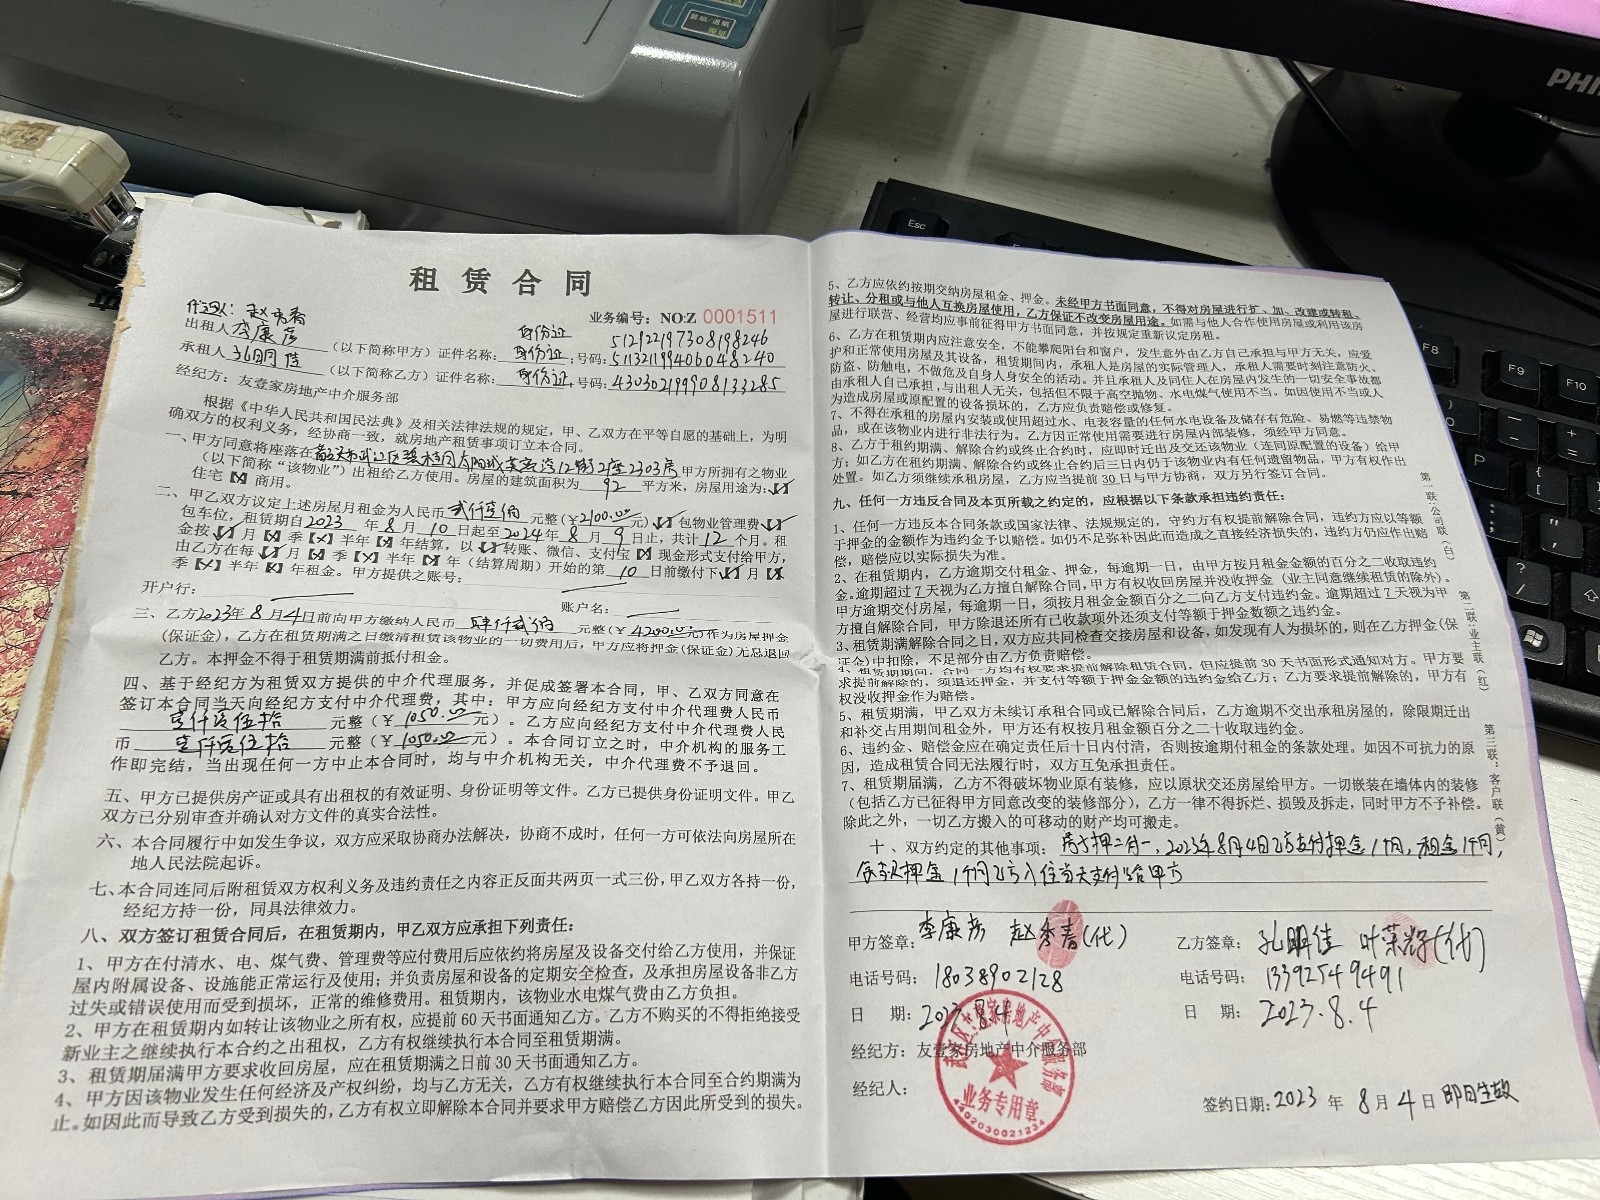 租赁合同
业务编号：NO:Z 0001511
代理人：赵秀春 身份证 512922197308198246
出租人李康彦（以下简称甲方）证件名称：身份证；号码：511321199406048240
承租人孔明佳（以下简称乙方）证件名称：身份证；号码：430302199908133285
经纪方：友壹家房地产中介服务部
根据《中华人民共和国民法典》及相关法律法规的规定，甲、乙双方在平等自愿的基础上，为明
确双方的权利义务，经协商一致，就房地产租赁事项订立本合同。
一、甲方同意将座落在 武江区 12街2座2303房 甲方所拥有之物业
（以下简称“该物业”）出租给乙方使用。房屋的建筑面积为 92 平方米，房屋用途为：
住宅 商用。
二、甲乙双方议定上述房屋月租金为人民币 贰仟壹佰 元整（￥2100.00元） 包物业管理费
包车位，租赁期自2023年8月10日起至2024年8月9日止，共计12个月。租
金按 月 季 半年 年结算，以 转账、微信、支付宝 现金形式支付给甲方，
由乙方在每 月 季 半年 年（结算周期）开始的第 10 日前缴付下 月
季 半年 年租金。甲方提供之账号：
开户行： 账户名：
三、乙方2023年8月4日前向甲方缴纳人民币 肆仟贰佰 元整（￥4200.00元）作为房屋押金
（保证金），乙方在租赁期满之日缴清租赁该物业的一切费用后，甲方应将押金（保证金）无息退回
乙方。本押金不得于租赁期满前抵付租金。
四、基于经纪方为租赁双方提供的中介代理服务，并促成签署本合同，甲、乙双方同意在
签订本合同当天向经纪方支付中介代理费，其中：甲方应向经纪方支付中介代理费人民币
壹仟零伍拾 元整（￥1050.00元）。乙方应向经纪方支付中介代理费人民
币 壹仟零伍拾 元整（￥1050.00元）。本合同订立之时，中介机构的服务工
作即完结，当出现任何一方中止本合同时，均与中介机构无关，中介代理费不予退回。
五、甲方已提供房产证或具有出租权的有效证明、身份证明等文件。乙方已提供身份证明文件。甲乙
双方已分别审查并确认对方文件的真实合法性。
六、本合同履行中如发生争议，双方应采取协商办法解决，协商不成时，任何一方可依法向房屋所在
地人民法院起诉。
七、本合同连同后附租赁双方权利义务及违约责任之内容正反面共两页一式三份，甲乙双方各持一份，
经纪方持一份，同具法律效力。
八、双方签订租赁合同后，在租赁期内，甲乙双方应承担下列责任：
1、甲方在付清水、电、煤气费、管理费等应付费用后应依约将房屋及设备交付给乙方使用，并保证
屋内附属设备、设施能正常运行及使用；并负责房屋和设备的定期安全检查，及承担房屋设备非乙方
过失或错误使用而受到损坏，正常的维修费用。租赁期内，该物业水电煤气费由乙方负担。
2、甲方在租赁期内如转让该物业之所有权，应提前60天书面通知乙方。乙方不购买的不得拒绝接受
新业主之继续执行本合约之出租权，乙方有权继续执行本合同至租赁期满。
3、租赁期届满甲方要求收回房屋，应在租赁期满之日前30天书面通知乙方。
4、甲方因该物业发生任何经济及产权纠纷，均与乙方无关，乙方有权继续执行本合同至合约期满为
止。如因此而导致乙方受到损失的，乙方有权立即解除本合同并要求甲方赔偿乙方因此所受到的损失。
5、乙方应依约按期交纳房屋租金、押金。未经甲方书面同意，不得对房屋进行扩、加、改建或转租、
转让、分租或与他人互换房屋使用，乙方保证不改变房屋用途。如需与他人合作使用房屋或利用该房
屋进行联营、经营均应事前征得甲方书面同意，并按规定重新议定房租。
6、乙方在租赁期内应注意安全，不能攀爬阳台和窗户，发生意外由乙方自己承担与甲方无关，应爱
护和正常使用房屋及其设备，租赁期间内，承租人是房屋的实际管理人，承租人需要时刻注意防火、
防盗、防触电，不做危及自身人身安全的活动。并且承租人及同住人在房屋内发生的一切安全事故都
由承租人自己承担，与出租人无关，包括但不限于高空抛物、水电煤气使用不当。如因使用不当或人
为造成房屋或原配置的设备损坏的，乙方应负责赔偿或修复。
7、不得在承租的房屋内安装或使用超过水、电表容量的任何水电设备及储存有危险、易燃等违禁物
品，或在该物业内进行非法行为。乙方因正常使用需要进行房屋内部装修，须经甲方同意。
8、乙方于租约期满、解除合约或终止合约时，应即时迁出及交还该物业（连同原配置的设备）给甲
方；如乙方在租约期满、解除合约或终止合约后三日内仍于该物业内有任何遗留物品，甲方有权作出
处置。如乙方须继续承租房屋，乙方应当提前30日与甲方协商，双方另行签订合同。
九、任何一方违反合同及本页所载之约定的，应根据以下条款承担违约责任：
1、任何一方违反本合同条款或国家法律、法规规定的，守约方有权提前解除合同，违约方应以等额
于押金的金额作为违约金予以赔偿。如仍不足弥补因此而造成之直接经济损失的，违约方仍应作出赔
偿，赔偿应以实际损失为准。
2、在租赁期内，乙方逾期交付租金、押金，每逾期一日，由甲方按月租金金额的百分之二收取违约
金。逾期超过7天视为乙方擅自解除合同，甲方有权收回房屋并没收押金（业主同意继续租赁的除外）。
甲方逾期交付房屋，每逾期一日，须按月租金金额百分之二向乙方支付违约金。逾期超过7天视为甲
方擅自解除合同，甲方除退还所有已收款项外还须支付等额于押金数额之违约金。
3、租赁期满解除合同之日，双方应共同检查交接房屋和设备，如发现有人为损坏的，则在乙方押金（保
证金）中扣除，不足部分由乙方负责赔偿。
4、租赁期期间，合同一方均有权要求提前解除租赁合同，但应提前30天书面形式通知对方。甲方要
求提前解除的，须退还押金，并支付等额于押金金额的违约金给乙方；乙方要求提前解除的，甲方有
权没收押金作为赔偿。
5、租赁期满，甲乙双方未续订承租合同或已解除合同后，乙方逾期不交出承租房屋的，除限期迁出
和补交占用期间租金外，甲方还有权按月租金额百分之二十收取违约金。
6、违约金、赔偿金应在确定责任后十日内付清，否则按逾期付租金的条款处理。如因不可抗力的原
因，造成租赁合同无法履行时，双方互免承担责任。
7、租赁期届满，乙方不得破坏物业原有装修，应以原状交还房屋给甲方。一切嵌装在墙体内的装修
（包括乙方已征得甲方同意改变的装修部分），乙方一律不得拆烂、损毁及拆走，同时甲方不予补偿。
除此之外，一切乙方搬入的可移动的财产均可搬走。
十、双方约定的其他事项：房子押二付一，2023年8月4日乙方支付押金1个月，租金1个月，
余下押金1个月乙方入住当天支付给甲方
甲方签章：李康彦 赵秀春(代)
乙方签章：孔明佳 叶荣辉(代)
电话号码：18038902128
电话号码：13392549491
日 期：2023.8.4
日 期：2023.8.4
经纪方：友壹家房地产中介服务部
经纪人：
签约日期：2023年8月4日即日生效
武江区友壹家房地产中介服务部
业务专用章
4402030021234
第一联：公司联（白）
第二联：业主联（红）
第三联：客户联（黄）
装纸/退纸
Esc
F8
F9
F10
PHI